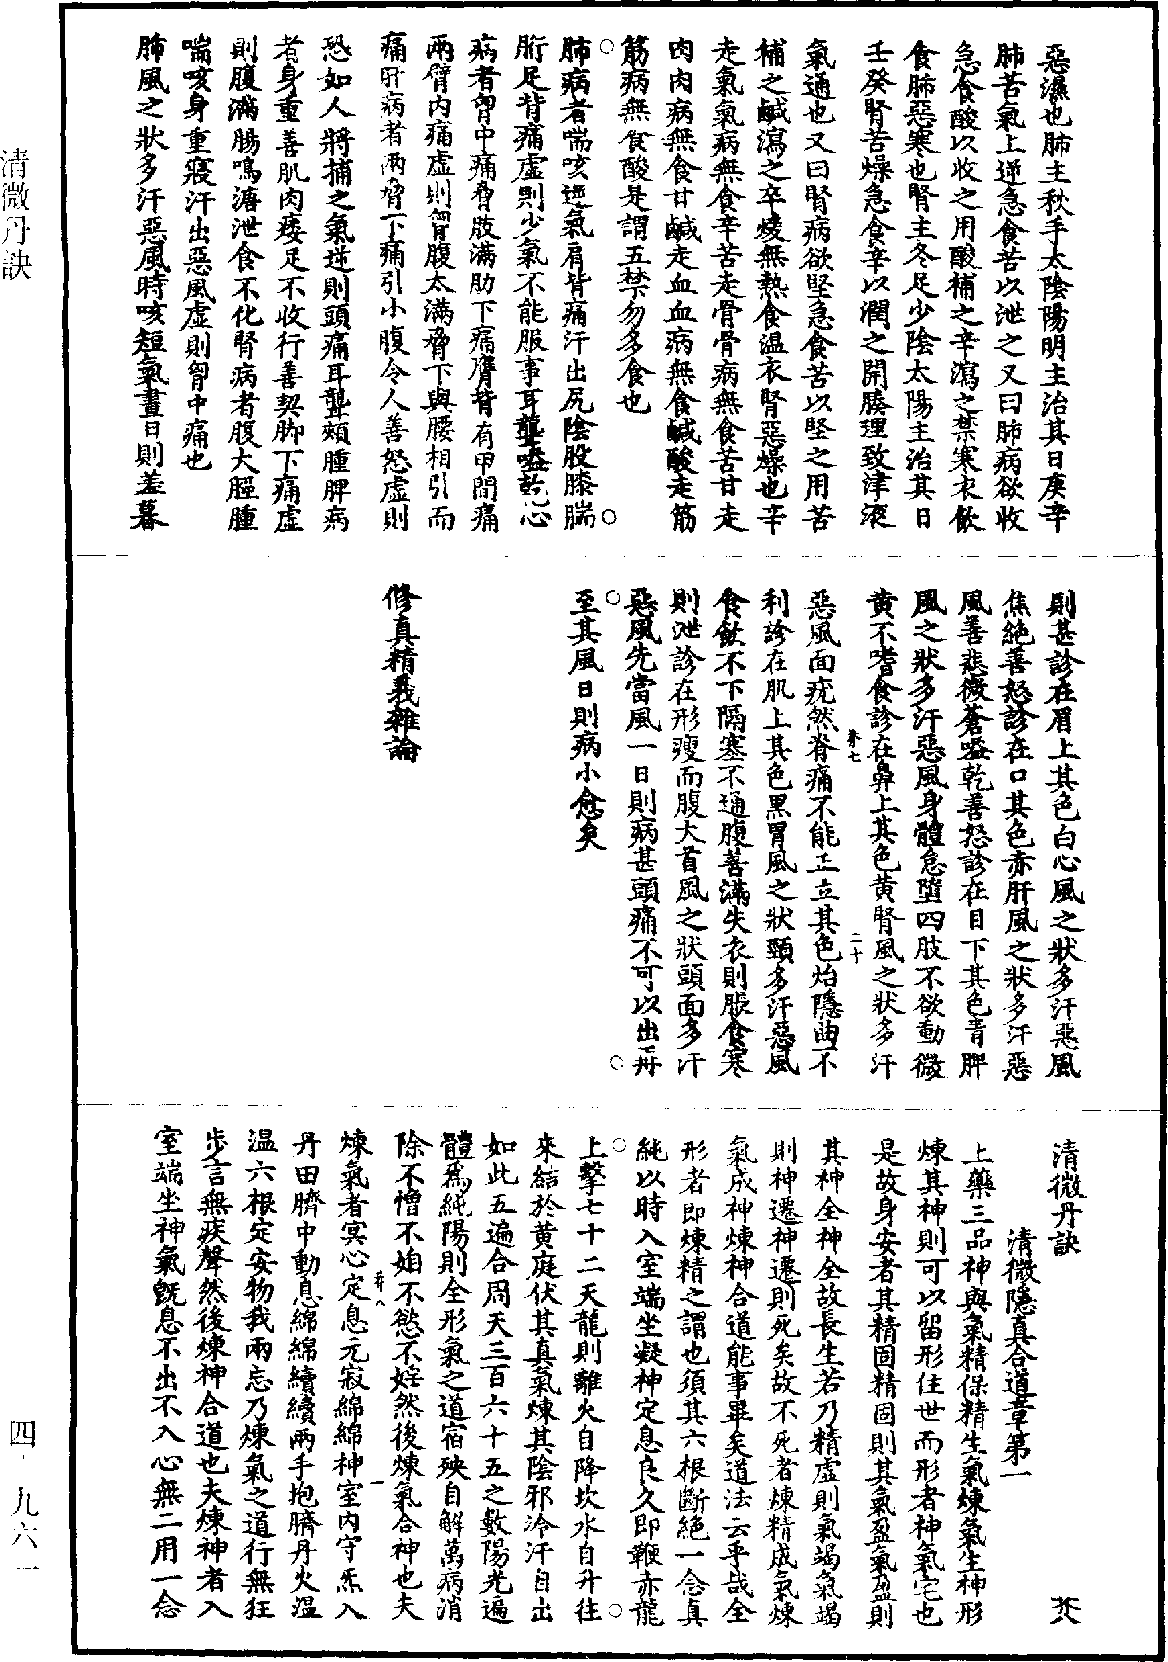 惡濕也肺主秋手太陰陽明主治其日庚辛
肺苦氣上逆急食苦以泄之又曰肺病欲收
急食酸以收之用酸補之辛瀉之禁寒衣飲
食肺惡寒也腎主冬足少陰太陽主治其日
壬癸腎苦燥急食辛以潤之開腠理致津液
氣通也又曰腎病欲堅急食苦以堅之用苦
補之鹹瀉之卒焠無熱食溫衣腎惡燥也辛
走氣氣病無食辛苦走骨骨病無食苦甘走
肉肉病無食甘鹹走血血病無食鹹酸走筋
筋病無食酸是謂五禁勿多食也
肺病者喘咳逆氣肩背痛汗出尻陰股膝腨
胻足背痛虛則少氣不能服事耳聾嗌乾心
病者胷中痛脅肢滿肋下痛膺背有甲間痛
兩臂內痛虛則胷腹太滿脅下與腰相引而
痛肝病者兩脅下痛引小腹令人善怒虛則
恐如人將捕之氣逆則頭痛耳聾頰腫脾病
者身重善肌肉痿足不收行善契脚下痛虛
則腹滿腸鳴溏泄食不化腎病者腹大脛腫
喘咳身重寢汗出惡風虛則胷中痛也
肺風之狀多汗惡風時咳短氣晝日則差暮
則甚診在眉上其色白心風之狀多汗惡風
焦絕善怒診在口其色赤肝風之狀多汗惡
風善悲微蒼嗌乾善怒診在目下其色青脾
風之狀多汗惡風身體怠墮四肢不欲動微
黃不嗜食診在鼻上其色黃腎風之狀多汗
卷七 二十
惡風面疣然脊痛不能正立其色炲隱曲不
利診在肌上其色黑胃風之狀頸多汗惡風
食飲不下隔塞不通腹善滿失衣則脹食寒
則泄診在形瘦而腹大首風之狀頭面多汗
惡風先當風一日則病甚頭痛不可以出再
至其風日則病小愈矣
修真精義雜論
清微丹訣 芥八
清微隱真合道章第一
上藥三品神與氣精保精生氣煉氣生神形
煉其神則可以留形住世而形者神氣宅也
是故身安者其精固精固則其氣盈氣盈則
其神全神全故長生若乃精虛則氣竭氣竭
則神遷神遷則死矣故不死者煉精成氣煉
氣成神煉神合道能事畢矣道法云乎哉全
形者即煉精之謂也須其六根斷絕一念真
純以時入室端坐凝神定息良久即鞭赤龍
上擊七十二天龍則離火自降坎水自升往
來結於黃庭伏其真氣煉其陰邪冷汗自出
如此五遍合周天三百六十五之數陽光遍
體爲純陽則全形氣之道宿殃自解萬病消
除不憎不妲不慾不婬然後煉氣合神也夫
芥八 一
煉氣者冥心定息元寂綿綿神室內守炁入
丹田臍中動息綿綿續續兩手抱臍丹火溫
溫六根定安物我兩忘乃煉氣之道行無狂
步言無疾聲然後煉神合道也夫煉神者入
室端坐神氣既息不出不入心無二用一念
清微丹訣
四·九六一